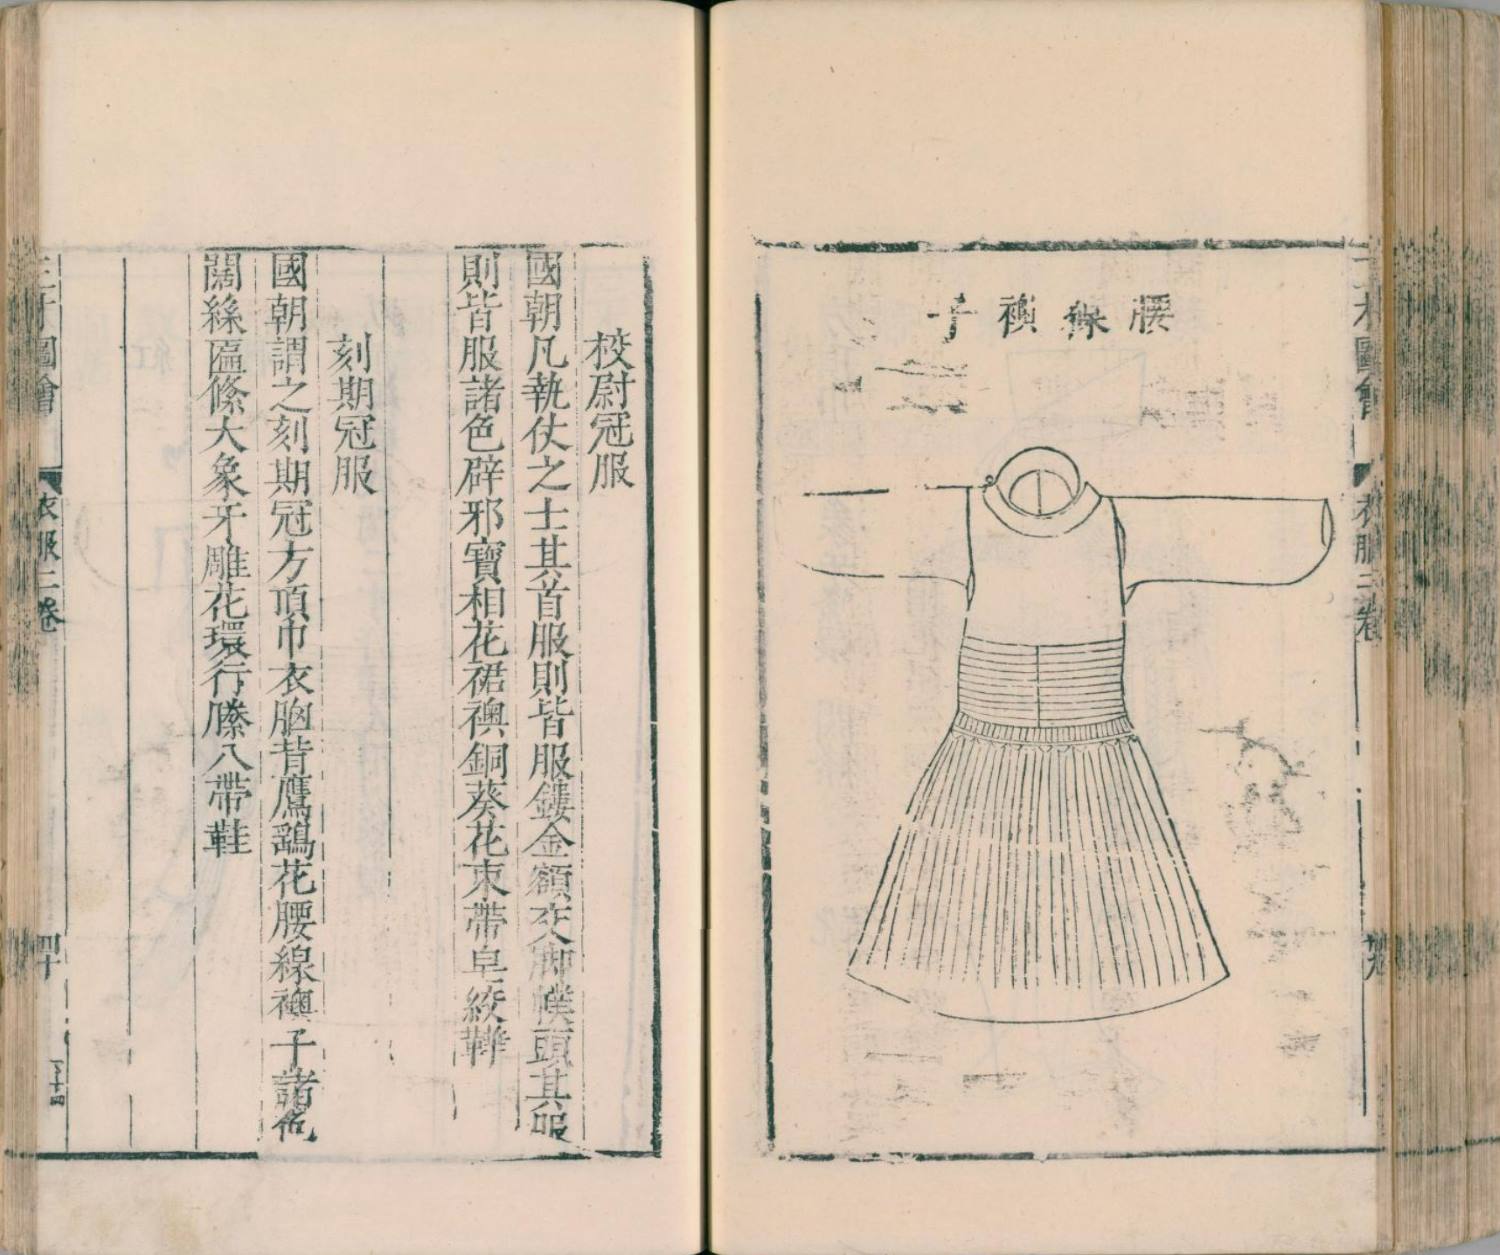 三才圖會
衣服二卷
腰線襖子
校尉冠服
國朝凡執仗之士其首服則皆服鏤金額交脚幞頭其服
則皆服諸色辟邪寶相花裙襖銅葵花束帶皁紋鞾
刻期冠服
國朝謂之刻期冠方頂巾衣胸背鷹鷂花腰線襖子諸色
闊絲匾絛大象牙雕花環行縢八帶鞋
三才圖會
衣服二卷
四十